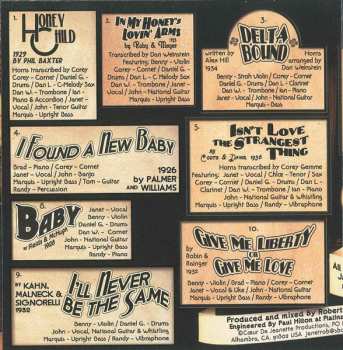 1.
HONEY CHILD
1929
BY PHIL BAXTER
Horns transcribed by Corey
Corey - Cornet / Daniel G. -
Drums / Dan L. - C-Melody Sax
Dan W. - Trombone / Ian -
Piano & Accordion / Janet -
Vocal / John - Tenor Guitar
Marquis - Upright Bass
2.
IN MY HONEY'S
LOVIN' ARMS
by Ruby & Meyer
Transcribed by Dan Weinstein
Featuring: Benny - Violin
Corey - Cornet / Daniel G. -
Drums / Dan L. - C Melody Sax
Dan W. - Trombone / Ian -
Piano / Janet - Vocal
John - National Guitar
Marquis - Upright Bass
3.
DELTA
BOUND
written by
Alex Hill
1934
Horns
arranged by
Dan Weinstein
Benny - Stroh Violin / Corey - Cornet
Daniel G. - Drums / Dan L. - Clarinet
Dan W. - Trombone / Janet -
Vocal / John - National Guitar
Marquis - Upright Bass
4.
I FOUND A NEW BABY
Brad - Piano / Corey - Cornet
Janet - Vocal / John - Banjo
Marquis - Upright Bass / Tom - Guitar
Randy - Percussion
1926
by PALMER
AND
WILLIAMS
5.
ISN'T LOVE
THE STRANGEST
THING
by Coots & Davis, 1936
Horns transcribed by Corey Gemme
Featuring: Corey - Cornet
Daniel G. - Drums / Dan L. -
Clarinet / Dan W. - Trombone / Ian - Piano
Janet - Vocal / Chloe - National Guitar
Marquis - Upright Bass / Randy - Vibraphone
BABY
by Fields & McHugh
1928
Janet - Vocal
Benny - Violin
Daniel G. - Drums
Dan W. - Cornet
John - National Guitar
Marquis - Upright Bass
Randy - Piano
9.
by KAHN,
MALNECK &
SIGNORELLI
1932
I'LL NEVER
BE THE SAME
Benny - Violin / Daniel G. - Drums
John - Vocal, National Guitar & Whistling
Marquis - Upright Bass / Randy - Piano
10.
GIVE ME LIBERTY
OR
GIVE ME LOVE
by
Robin &
Rainger
1933
Benny - Violin / Brad - Piano / Corey - Cornet
Daniel G. - Drums / Dan W. - Trombone
Janet - Vocal / John - National Guitar & Whistling
Marquis - Upright Bass / Randy - Vibraphone
Produced and mixed by Robert
Engineered by Paul Hilton at Platinum
©Cœur De Jeanette Productions, PO
Alhambra, CA 91802 USA